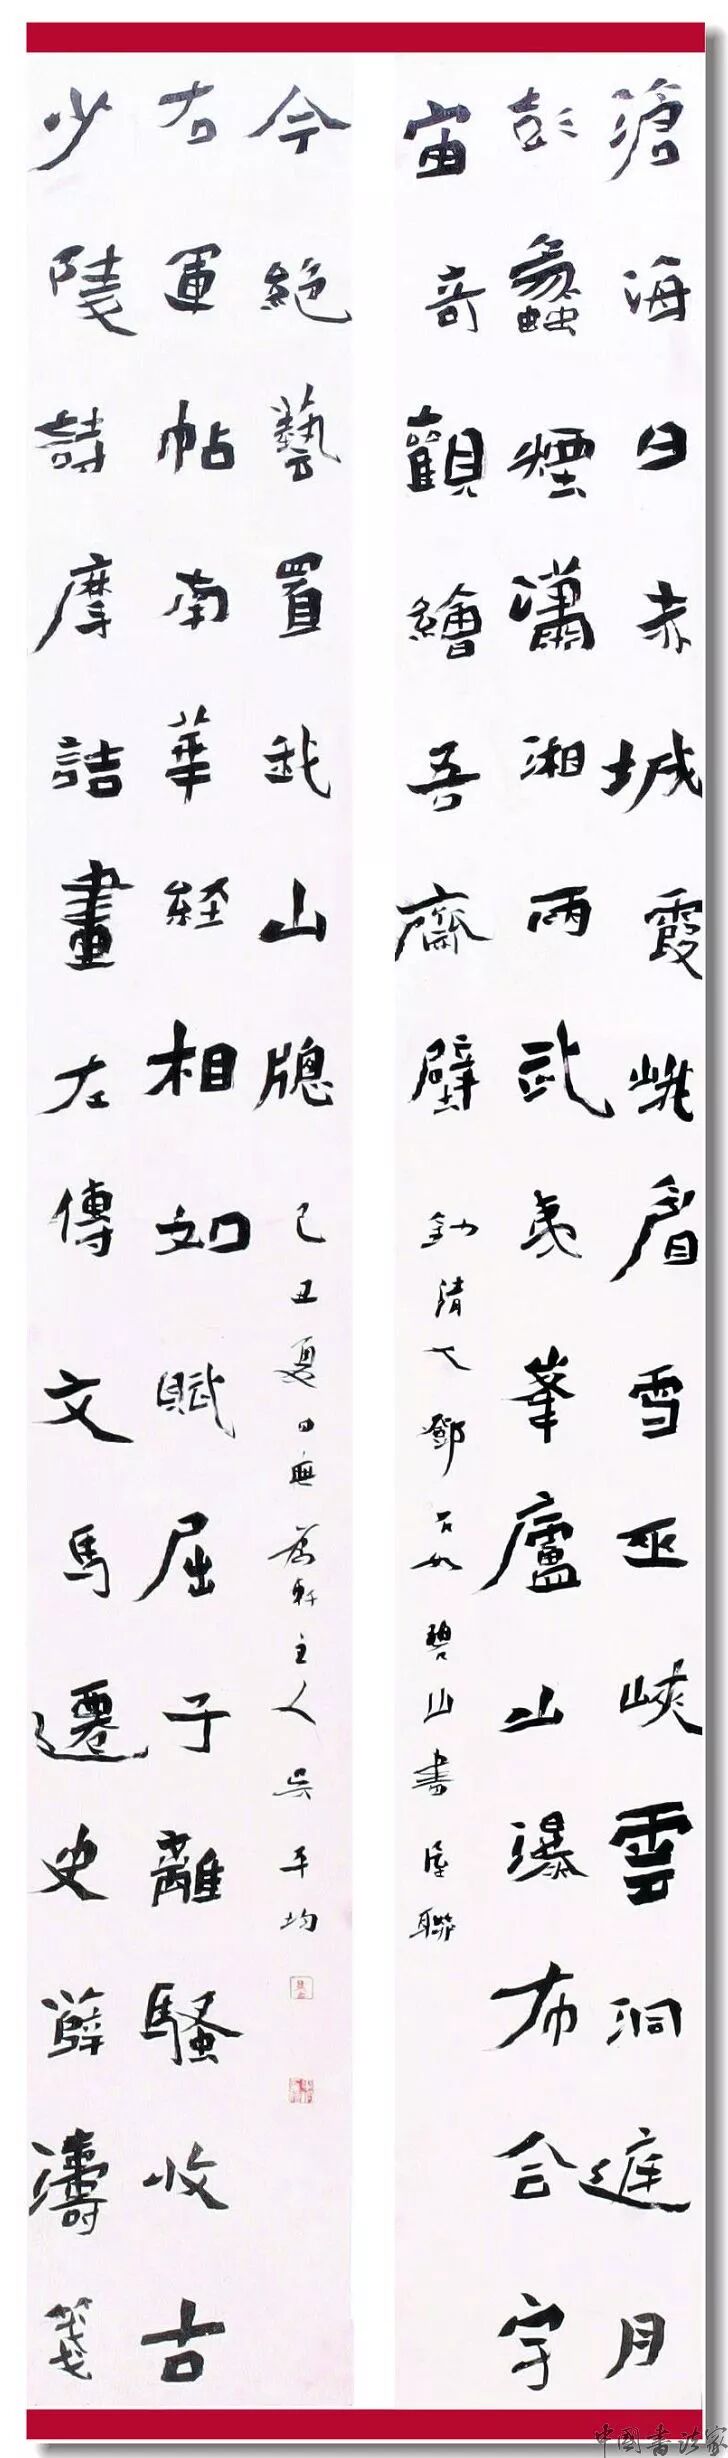 滄海日赤城霞峨眉雪巫峽雲洞庭月
彭蠡煙瀟湘雨武夷峯廬山瀑布合宇
宙奇觀繪吾齋壁
清人鄧石如碧山書屋聯
少陵詩摩詰畫左傳文馬遷史薛濤箋
右軍帖南華經相如賦屈子離騷收古
今絕藝置我山牕
己丑夏日無為軒主人吳平均
中國書法家